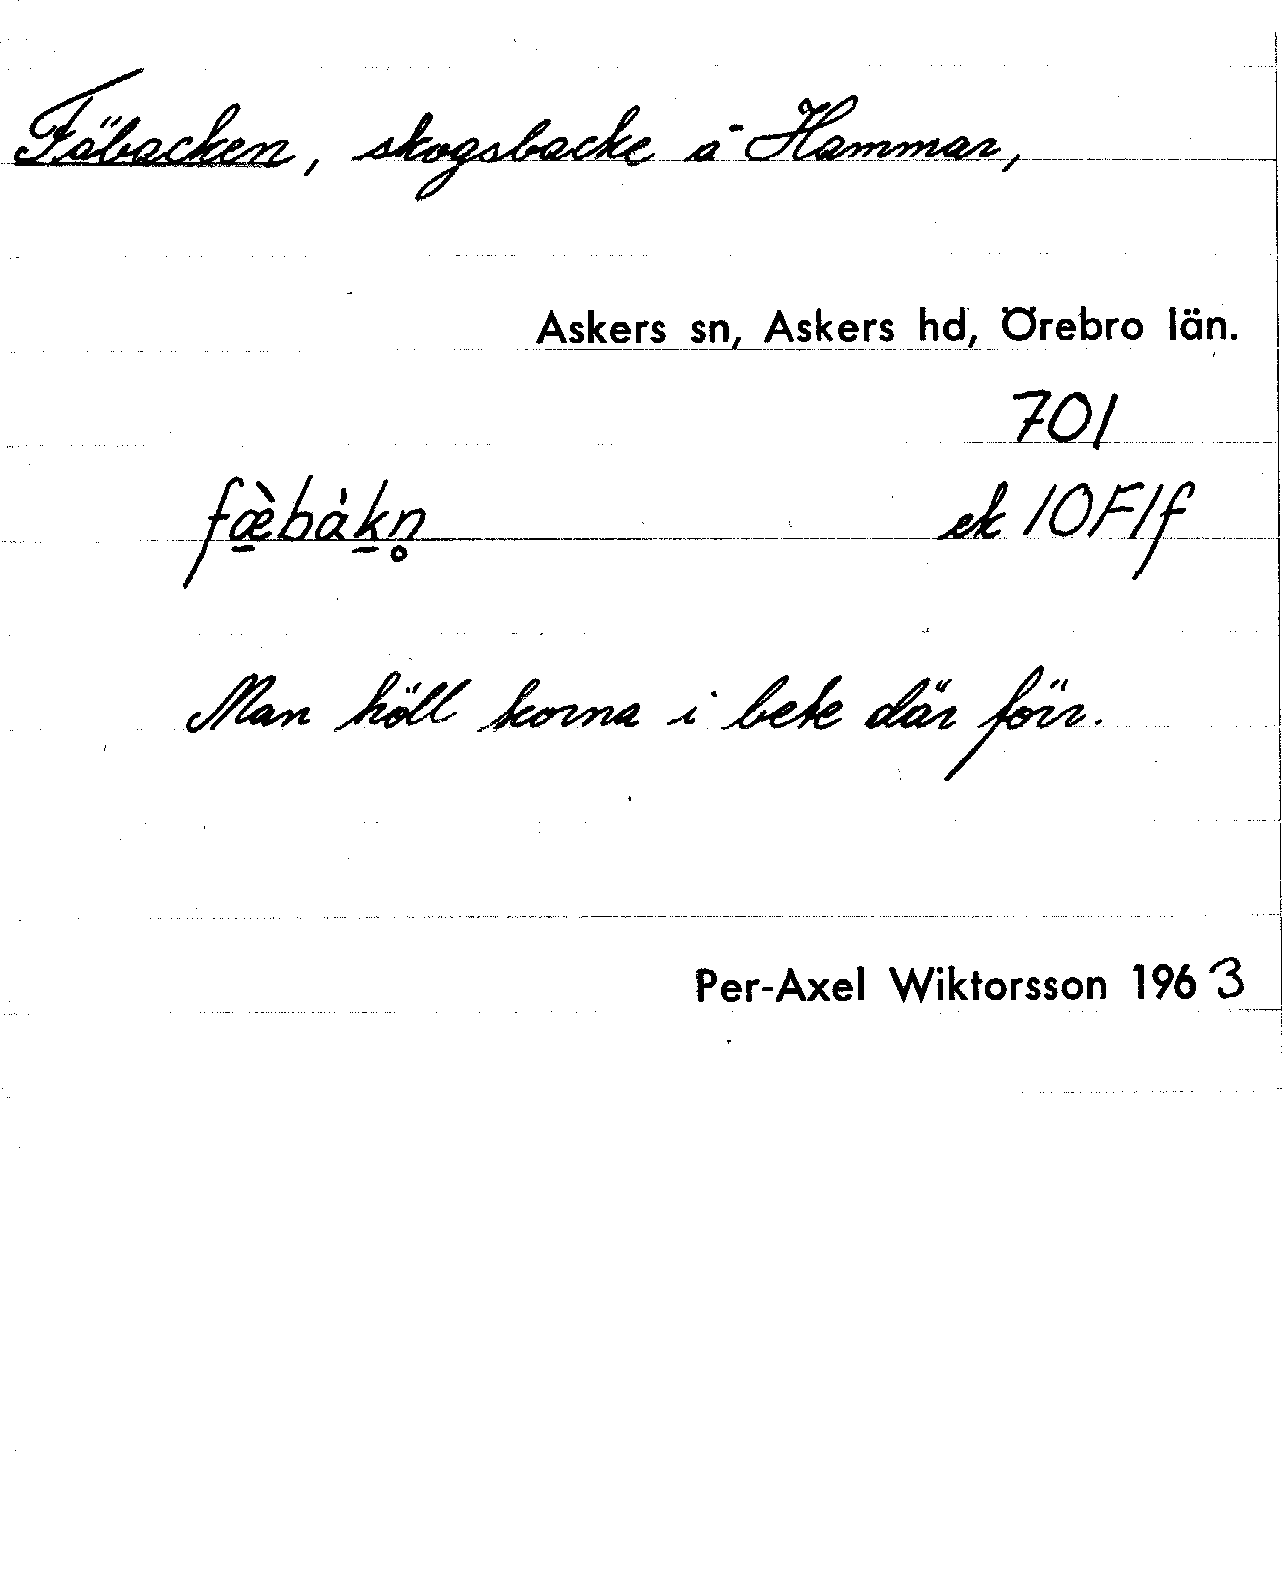 Fäbacken, skogsbacke å Hammar,
Askers sn, Askers hd, Örebro län.
701
fæ̠̀bàk̠n̥ ek 10F1f
Man höll korna i bete där förr.
Per-Axel Wiktorsson 1963